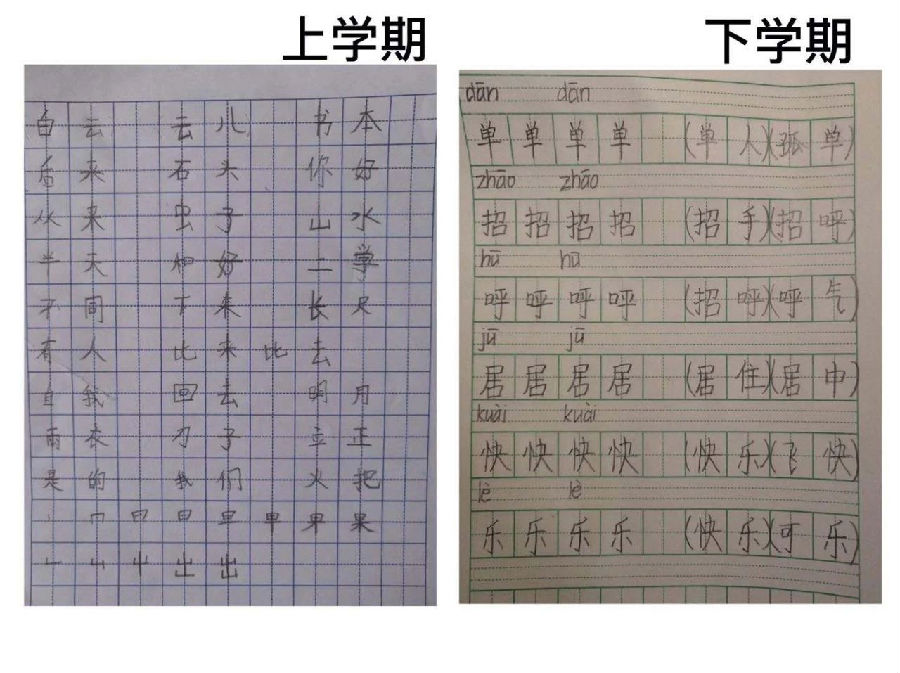 上学期
下学期
白云 去儿 书本
后来 石头 你好
从来 虫子 山水
半天 和好 上学
不同 下来 长尺
有人 比来比去
自我 回去 明用
雨衣 刀子 立正
是的 我们 火把
丨 冂 曰 日 旦 甲 早 果
凵 屮 中 出 出
dān dān
单单单单 (单人)(孤单)
zhāo zhāo
招招招招 (招手)(招呼)
hū hū
呼呼呼呼 (招呼)(呼气)
jū jū
居居居居 (居住)(居中)
kuài kuài
快快快快 (快乐)(飞快)
lè lè
乐乐乐乐 (快乐)(可乐)